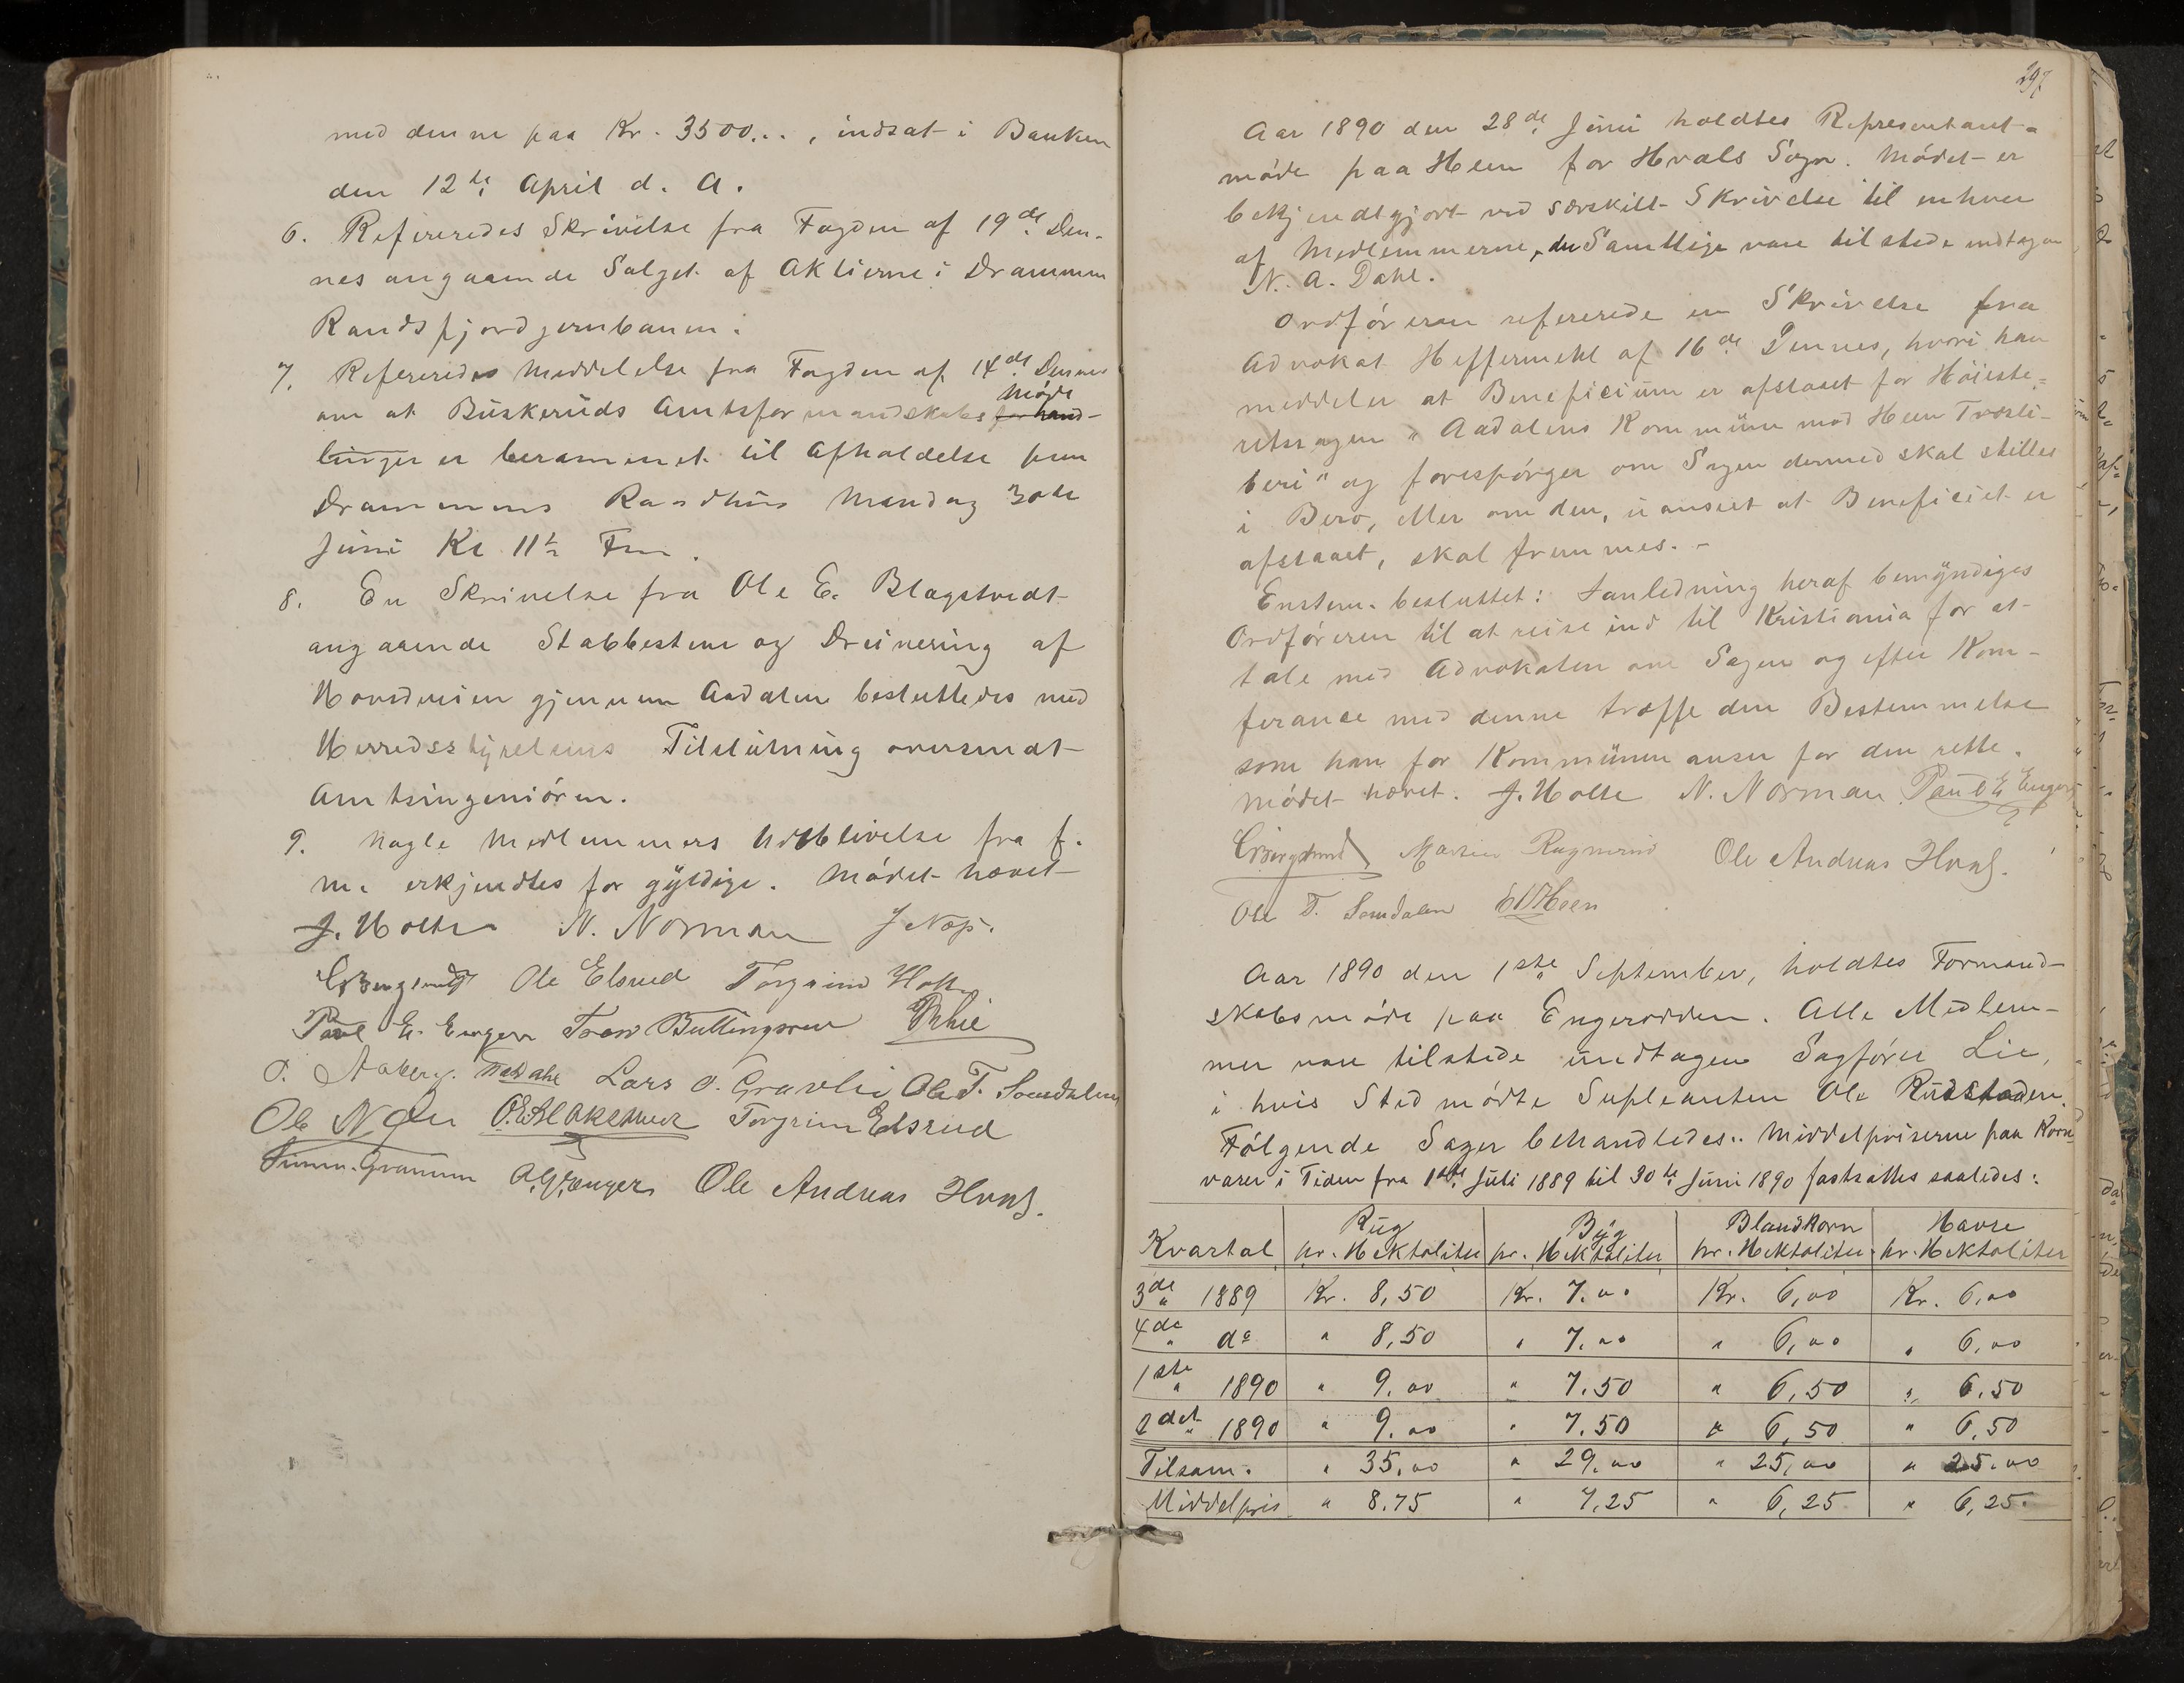 med denne paa Kr. 3500.., indsat i Banken
den 12te April d. A.
6. Refereredes Skrivelse fra Fogden af 19de Den-
nes angaaende Salget af Aktierne i Drammen
Randsfjordjernbanen.
7. Refereredes Meddelelse fra Fogden af 14de Dennes
Møde
om at Buskeruds Amtsformandskabs forhand-
linger er berammet til Afholdelse paa
Drammens Raadhus Mandag 30te
Juni Kl 11½ Fm.
8. En Skrivelse fra Ole E. Blagstvedt
angaaende Stabbestene og Dreinering af
Hovedveien gjennem Aadalen besluttedes med
Herredsstyrelsens Tilslutning oversendt
Amtsingeniøren.
9. Nogle Medlemmers Udeblivelse fra f.
m. erkjendtes for gyldige. Mødet hævet
J. Holte N. Norman J Næs.
Ole Elsrud Torgrim Holte
Paul E. Enger Trond Buttingsrud
O. Aaberg. Lars O. Gravlie Ole T. Somdalen
Ole N Torgrim Elsrud
Ole Andreas Hval.
297
Aar 1890 den 28de Juni holdtes Representant=
møde paa Heen for Hvals Sogn. Mødet er
bekjendtgjort ved særskilt Skrivelse til enhver
af Medlemmerne, der Samtlige vare tilstede undtagen
N. A. Dahl.
Ordføreren refererede en Skrivelse fra
Advokat Heffermehl af 16de Dennes, hvori han
meddeler at Beneficium er afslaaet for Høieste=
retssagen "Aadalens Kommune mod Heen Træsli-
beri" og forespørger om Sagen dermed skal stilles
i Bero, eller om den, uanseet at Beneficiet er
afslaaet, skal fremmes. -
Enstem. besluttet: I anledning heraf bemyndiges
Ordføreren til at reise ind til Kristiania for at
tale med Advokaten om Sagen og efter Kon-
ferance med denne træffe den Bestemmelse
som han for Kommunen anser for den rette.
Mødet hævet. J. Holte N. Norman Paul E Enger
Ole Andreas Hval.
Ole T. Somdalen
Aar 1890 den 1ste September, holdtes Formand-
skabsmøde paa Engerodden. Alle Medlem-
mer vare tilstede undtagen Sagfører Lie,
i hvis Sted mødte Supleanten Ole Rudstaden.
Følgende Sager behandledes: Middelpriserne paa Korn-
varer i Tiden fra 1ste Juli 1889 til 30te Juni 1890 fastsattes saaledes:
Kvartal Rug pr. Hektoliter Byg pr. Hektoliter Blandkorn pr. Hektoliter Havre pr. Hektoliter
3de " 1889 Kr. 8,50 Kr. 7.00 Kr. 6,00 Kr. 6,00
4de " do " 8,50 " 7.00 " 6,00 " 6,00
1ste " 1890 " 9.00 " 7.50 " 6,50 " 6.50
2det " 1890 " 9.00 " 7.50 " 6,50 " 6,50
Tilsam. " 35.00 " 29.00 " 25,00 " 25.00
Middelpris " 8.75 " 7,25 " 6,25 " 6,25